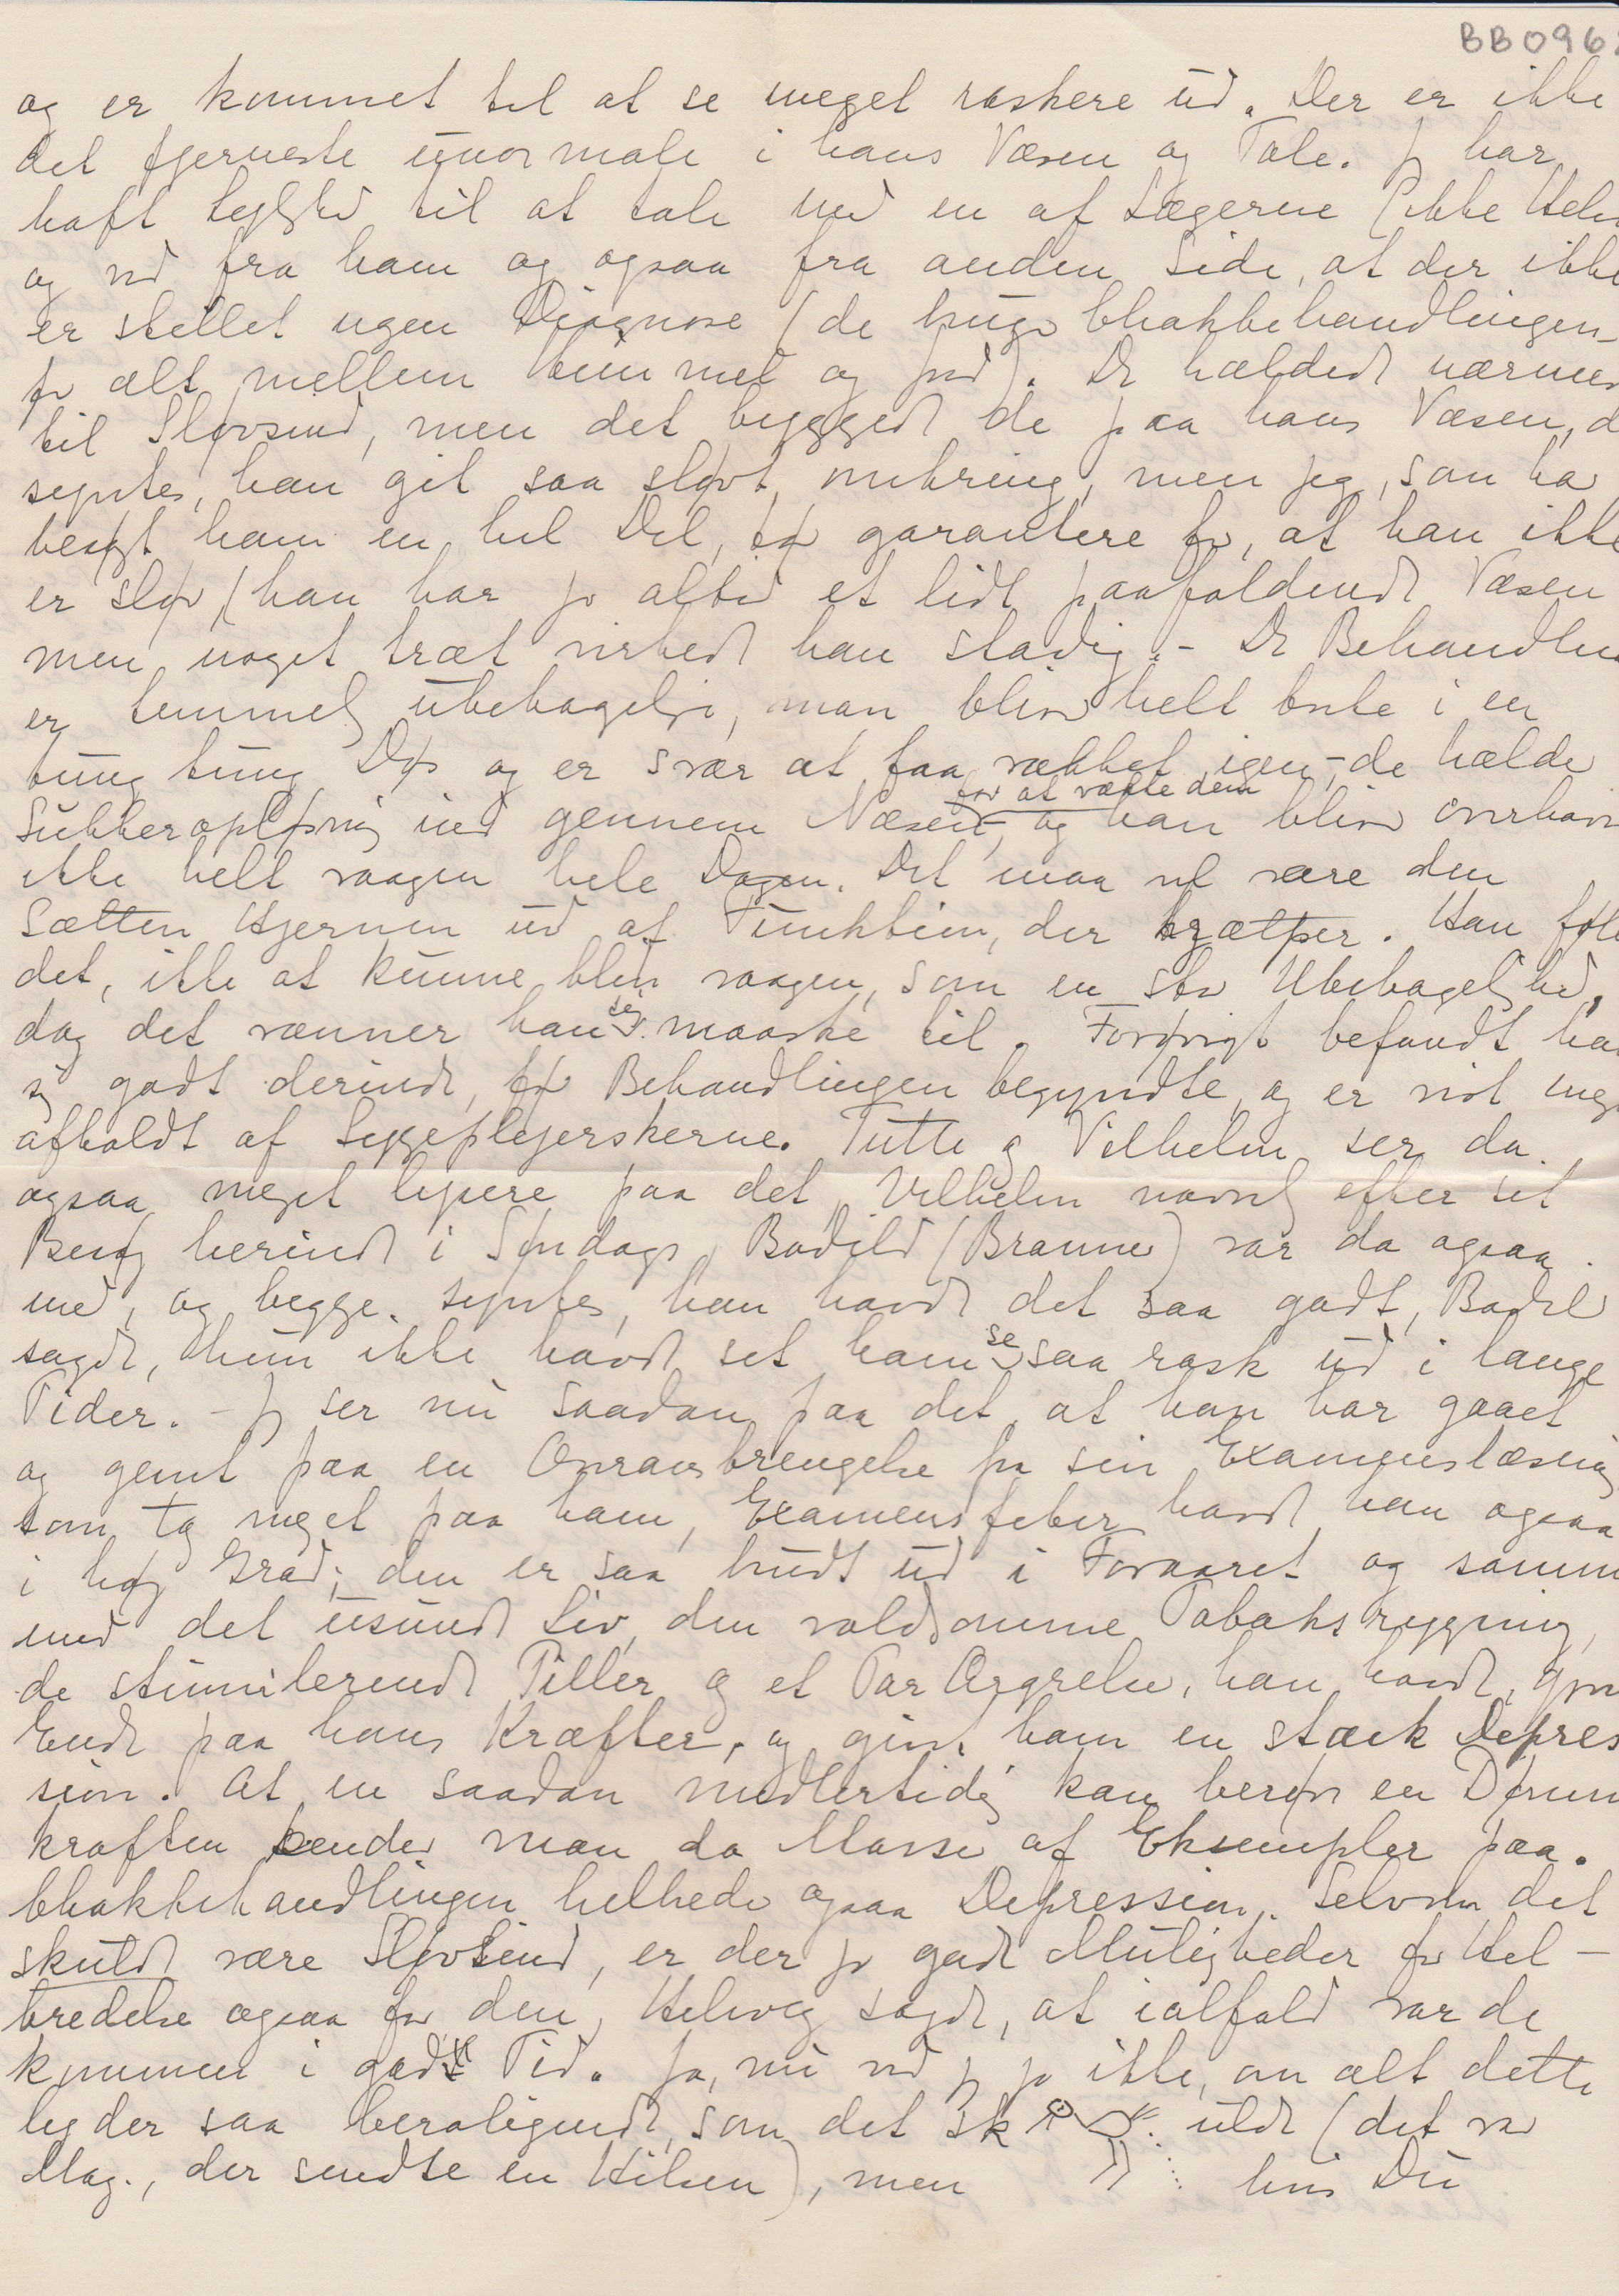 BB096
og er kommet til at se meget raskere ud. Der er ikke
det fjerneste unormale i hans Væsen og Tale. Jg har
haft Lejlghd til at tale md en af Lægerne (ikke Helv
og vd fra ham og ogsaa fra anden Side, at der ikke
er stillet ngen Diagnose (de bruge Chokbehandlingen
fr alt mellem Himmel og Jrd). De hældede nærmes
til Sløvsind, men det byggede de paa hans Væsen, d
syntes, han gik saa sløvt omkring, men jeg, som ha
besøgt ham en hel Del, tør garantere fr, at han ikke
er sløv (han har jo altid et lidt paafaldende Væsen
men noget træt virkede han stadig. – De Behandlin
er temmelg ubehagelge, man bliver helt borte i en
tung tung Døs og er svær at faa vækket igen, – de hælde
for at vække dem
Sukkeropløsning ind gennem Næsen, og han bliver overhov
ikke helt vaagen hele Dagen. Det maa vel være den
Sætten Hjernen ud af Funktion, der hjælper. Han føle
det, ikke at kunne blive vaagen, som en stor Ubehagelghed,
dog det vænner han sig maaske til. Forøvrigt befandt ha
sig godt derinde, før Behandlingen begyndte, og er vist meg
afholdt af Sygeplejerskerne. Tutte og Vilhelm ser da
ogsaa meget lysere paa det, Vilhelm navnlg efter sit
Besøg herinde i Søndags, Bodild (Branner) var da ogsaa
med, og begge syntes, han havde det saa godt, Bodil
sagde, hun ikke havde set ham se saa rask ud i lange
Tider. – Jg ser nu saadan paa det, at han har gaaet
og gemt paa en Overanstrengelse fra sin Examenslæsning
som tog meget paa ham, Examensfeber havde han ogsaa
i høj Grad; den er saa brudt ud i Foraaret og samm
med det usunde Liv, den voldsomme Tobaksrygning,
de stimulerende Piller og et Par Ærgrelser, han havde, gjor
Ende paa hans Kræfter, og givet ham en stærk Depres
sion. At en saadan midlertidig kan berøve en Dømme
kraften kender man da Masser af Eksempler paa.
Chokbehandlingen helbreder ogsaa Depression. Selvom det
skulde være Sløvsind, er der jo gode Muligheder for Hel-
bredelse ogsaa for den, Helweg sagde, at ialfald var de
kommen i god Tid. Ja, nu vd jg jo ikke, om alt dette
lyder saa beroligende, som det sk ulde (det var
Mag., der sendte en Hilsen), men hvis Du